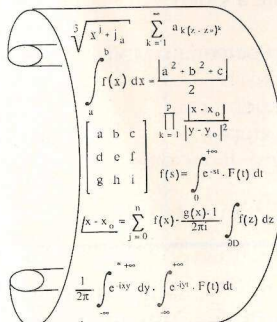 ∛(x^j + j_a) ∑_{k=1}^{∞} a_k(z - z_o)^k
∫_a^b f(x) dx = |a^2 + b^2 + c| / 2
[a b c ∏_{k=1}^{p} |x - x_o| / |y - y_o|^2
d e f
g h i] f(s) = ∫_0^{+∞} e^{-st} · F(t) dt
|x - x_o = ∑_{j=0}^{n} f(x) · g(x) · 1 / 2πi · ∫_{∂D} f(z) dz
1/2π · ∫_{-∞}^{+∞} e^{-ixy} dy · ∫_{-∞}^{+∞} e^{-iyt} · F(t) dt